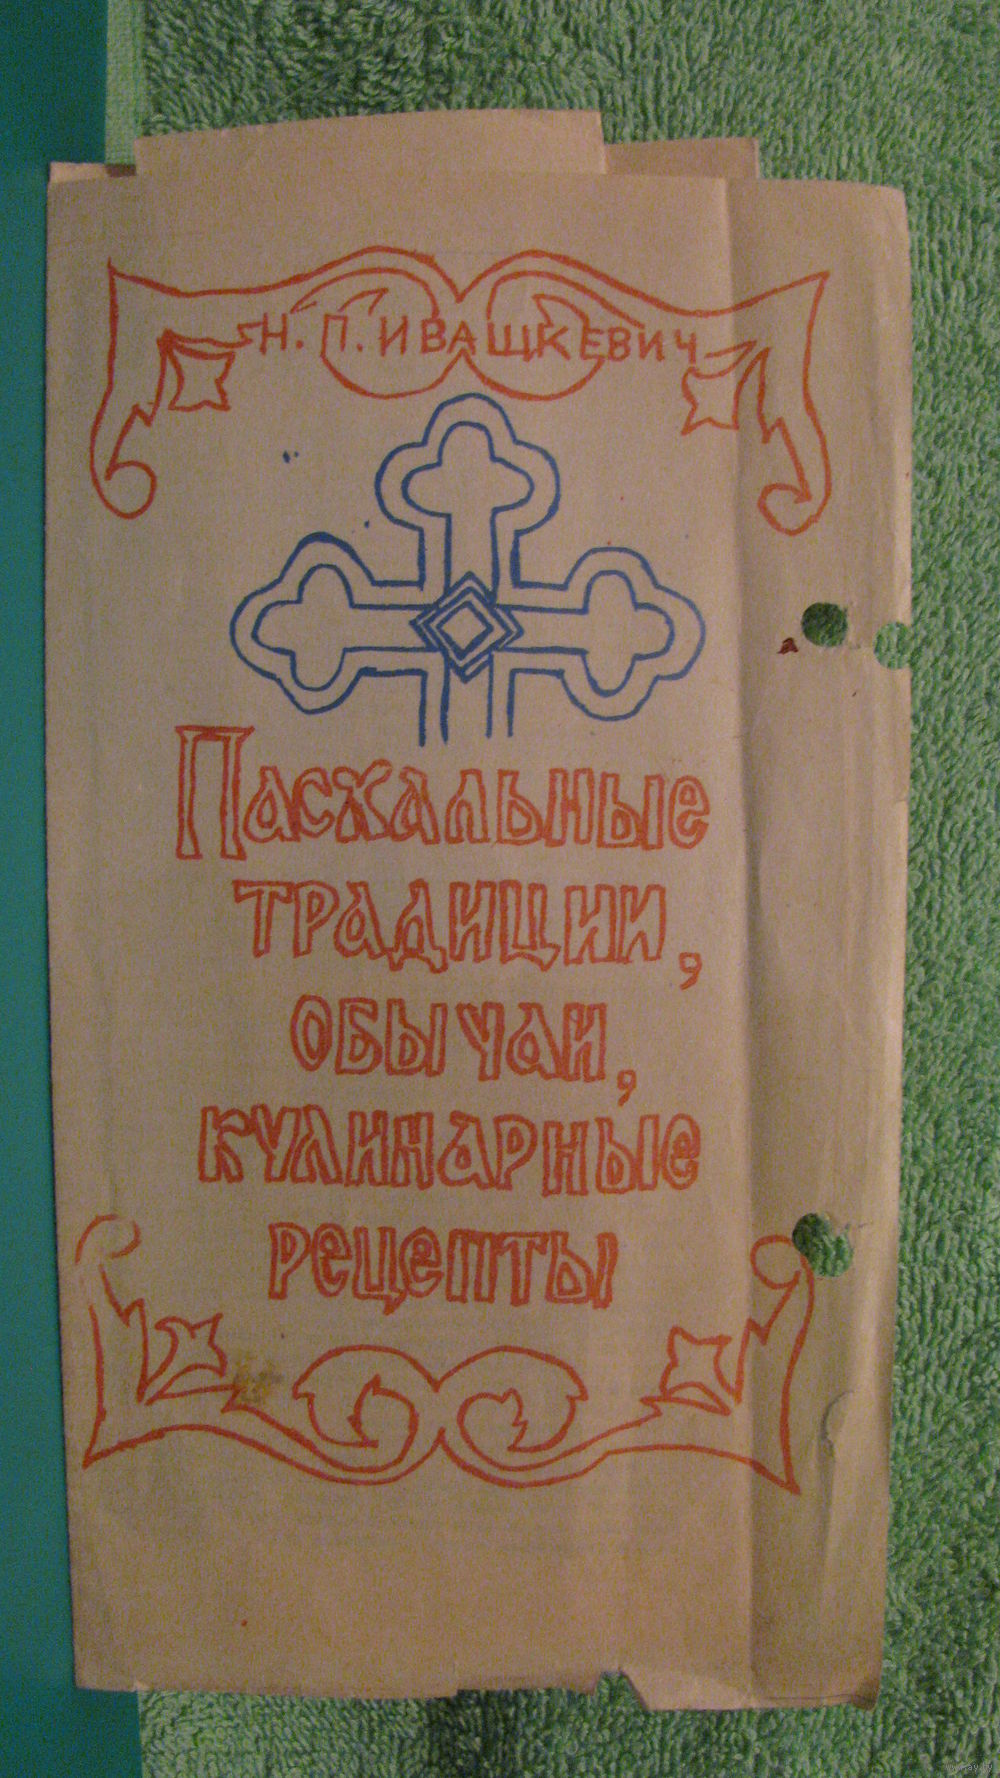 Н. П. ИВАШКЕВИЧ
Пасхальные
традиции,
обычаи,
кулинарные
рецепты